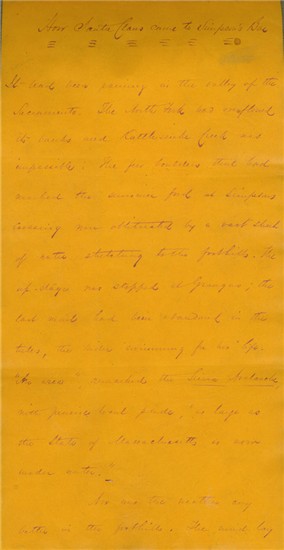 How Santa Claus came to Simpson's Bar
It had been raining in the valley of the
Sacramento. The North Fork had overflowed
its banks and Rattlesnake Creek was
impassable. The few boulders that had
marked the summer ford at Simpson's
Crossing were obliterated by a vast sheet
of water stretching to the foothills. The
up stage was stopped at Grangers; the
last mail had been abandoned in the
tules, the rider swimming for his life.
"An area", remarked the Sierra Avalanche,
with pensive local pride, "as large as
the State of Massachusetts is now
under water."
Nor was the weather any
better in the foothills. The mud lay